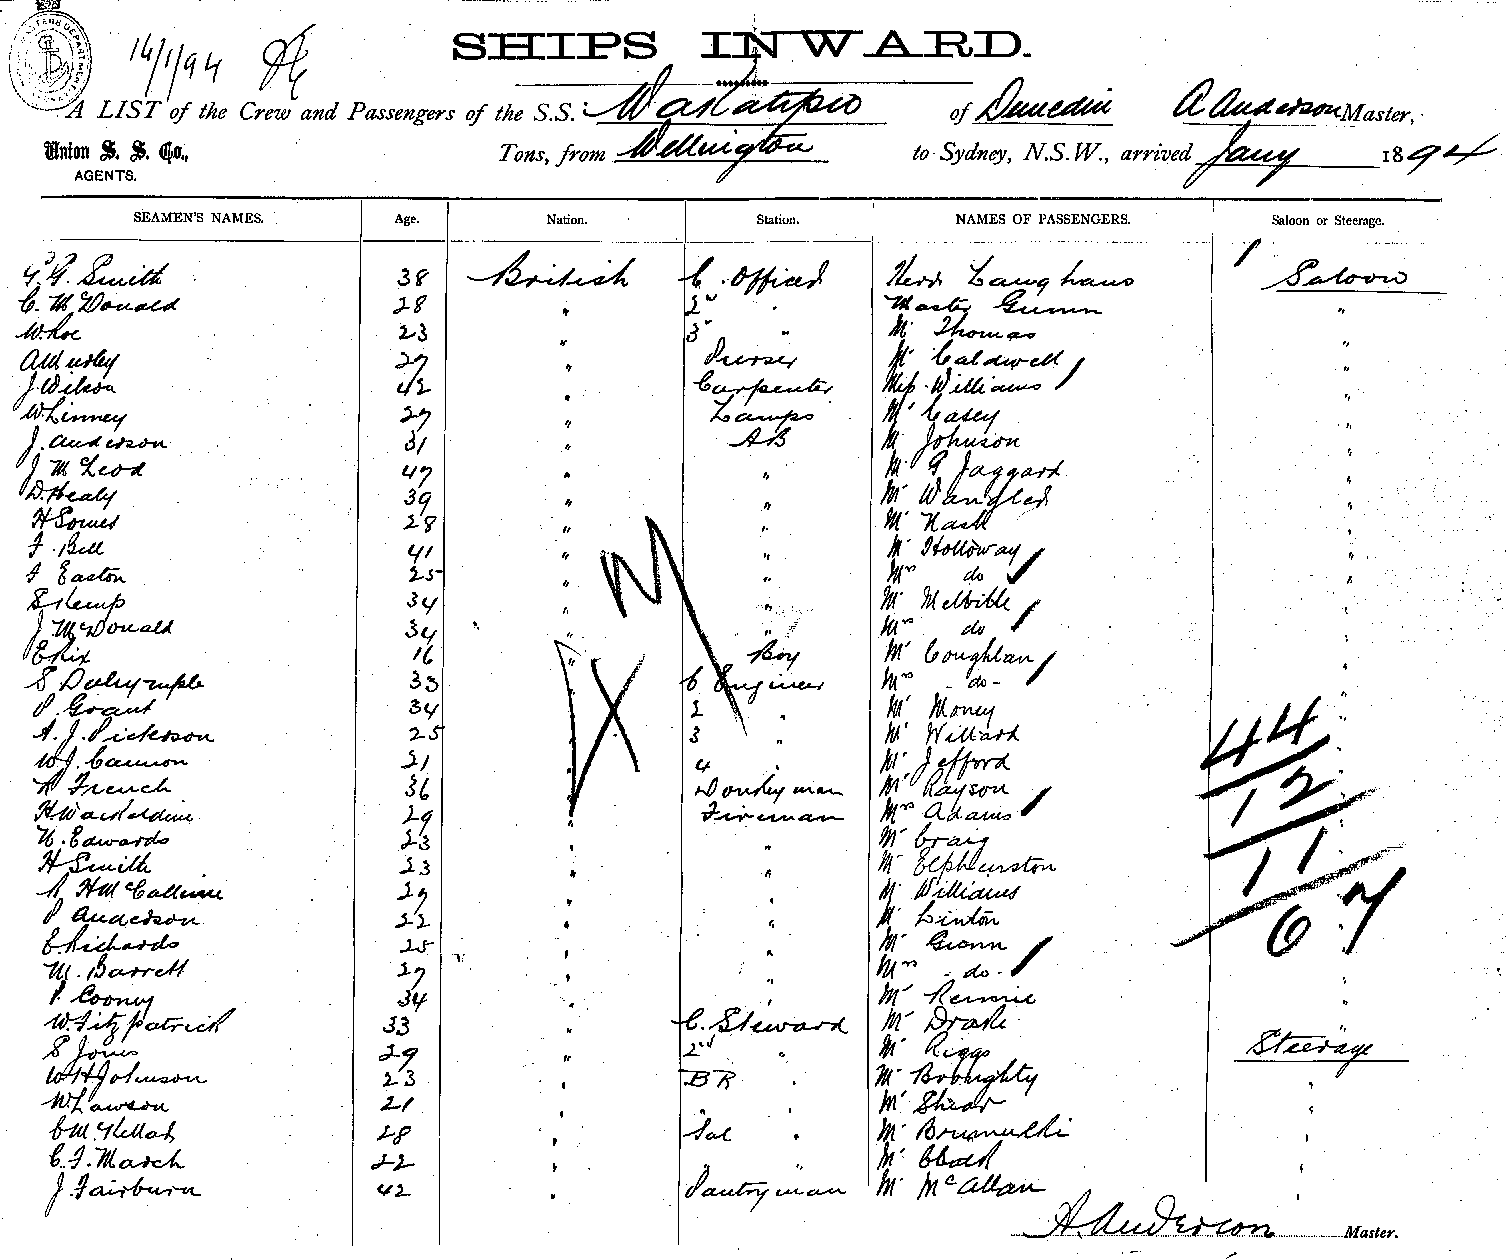 14/1/94
SHIPS INWARD.
A LIST of the Crew and Passengers of the S.S. Wakatipu of Dunedin A Anderson Master,
Union S. S. Co., AGENTS. Tons, from Wellington to Sydney, N.S.W., arrived Jany 1894
SEAMEN'S NAMES. Age. Nation. Station. NAMES OF PASSENGERS. Saloon or Steerage.
G. Smith 38 British C. Officer Herr Langhans Saloon
C. McDonald 28 " 2nd " Master Gunn "
W. Roe 23 " 3 " Mr Thomas "
27 " Purser Mr Caldwell "
J Wilson 42 " Carpenter Williams "
W Linney 27 " Lamps Mr Casey "
J. Anderson 31 " AB Mr Johnson "
J McLeod 47 " " Mr G Jaggard "
D. Healy 39 " " Mr Wangler "
H Somes 28 " " Mr Nash "
F. Bell 41 " " Mr Holloway "
F Easton 25 " " Mrs do "
S Kemp 34 " " Mr Melville "
J McDonald 34 " " Mrs do "
E Rix 16 " Boy Mr Coughlan "
S Dalrymple 33 " C Engineer Mrs - do - "
P. Grant 34 " 2 " Mr Money "
A. J. Dickson 25 " 3 " Mr Willard "
W J. Cannon 21 " 4 " Mr Jefford "
R French 36 " Donkeyman Mr Rayson "
29 " Fireman Mrs Adams "
N. Edwards 23 " " Mr Craig "
H Smith 23 " " Mr Elphinston "
R H McCallum 27 " " Mr Williams "
P Anderson 22 " " Mr Linton "
E Richards 25 " " Mr Gunn "
M. Barrett 27 " " Mrs - do - "
P. Cooney 34 " " Mr Rennie "
W. Fitzpatrick 33 " C. Steward Mr Drake "
S Jones 29 " 2nd " Mr Riggs Steerage
W H Johnson 23 " BR " Mr Broughty "
W Lawson 21 " " Mr Shear "
C McKellar 28 " Sal " Mr "
C. F. March 22 " " " Mr "
J Fairburn 42 " Pantryman Mr McAllan "
44
12
11
67
A. Anderson Master.